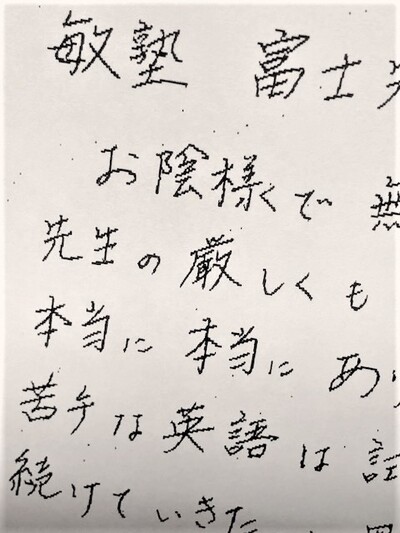 敏塾 富士
お陰様で 無
先生の厳しくも
本当に 本当に あり
苦手な英語は
続けていきた